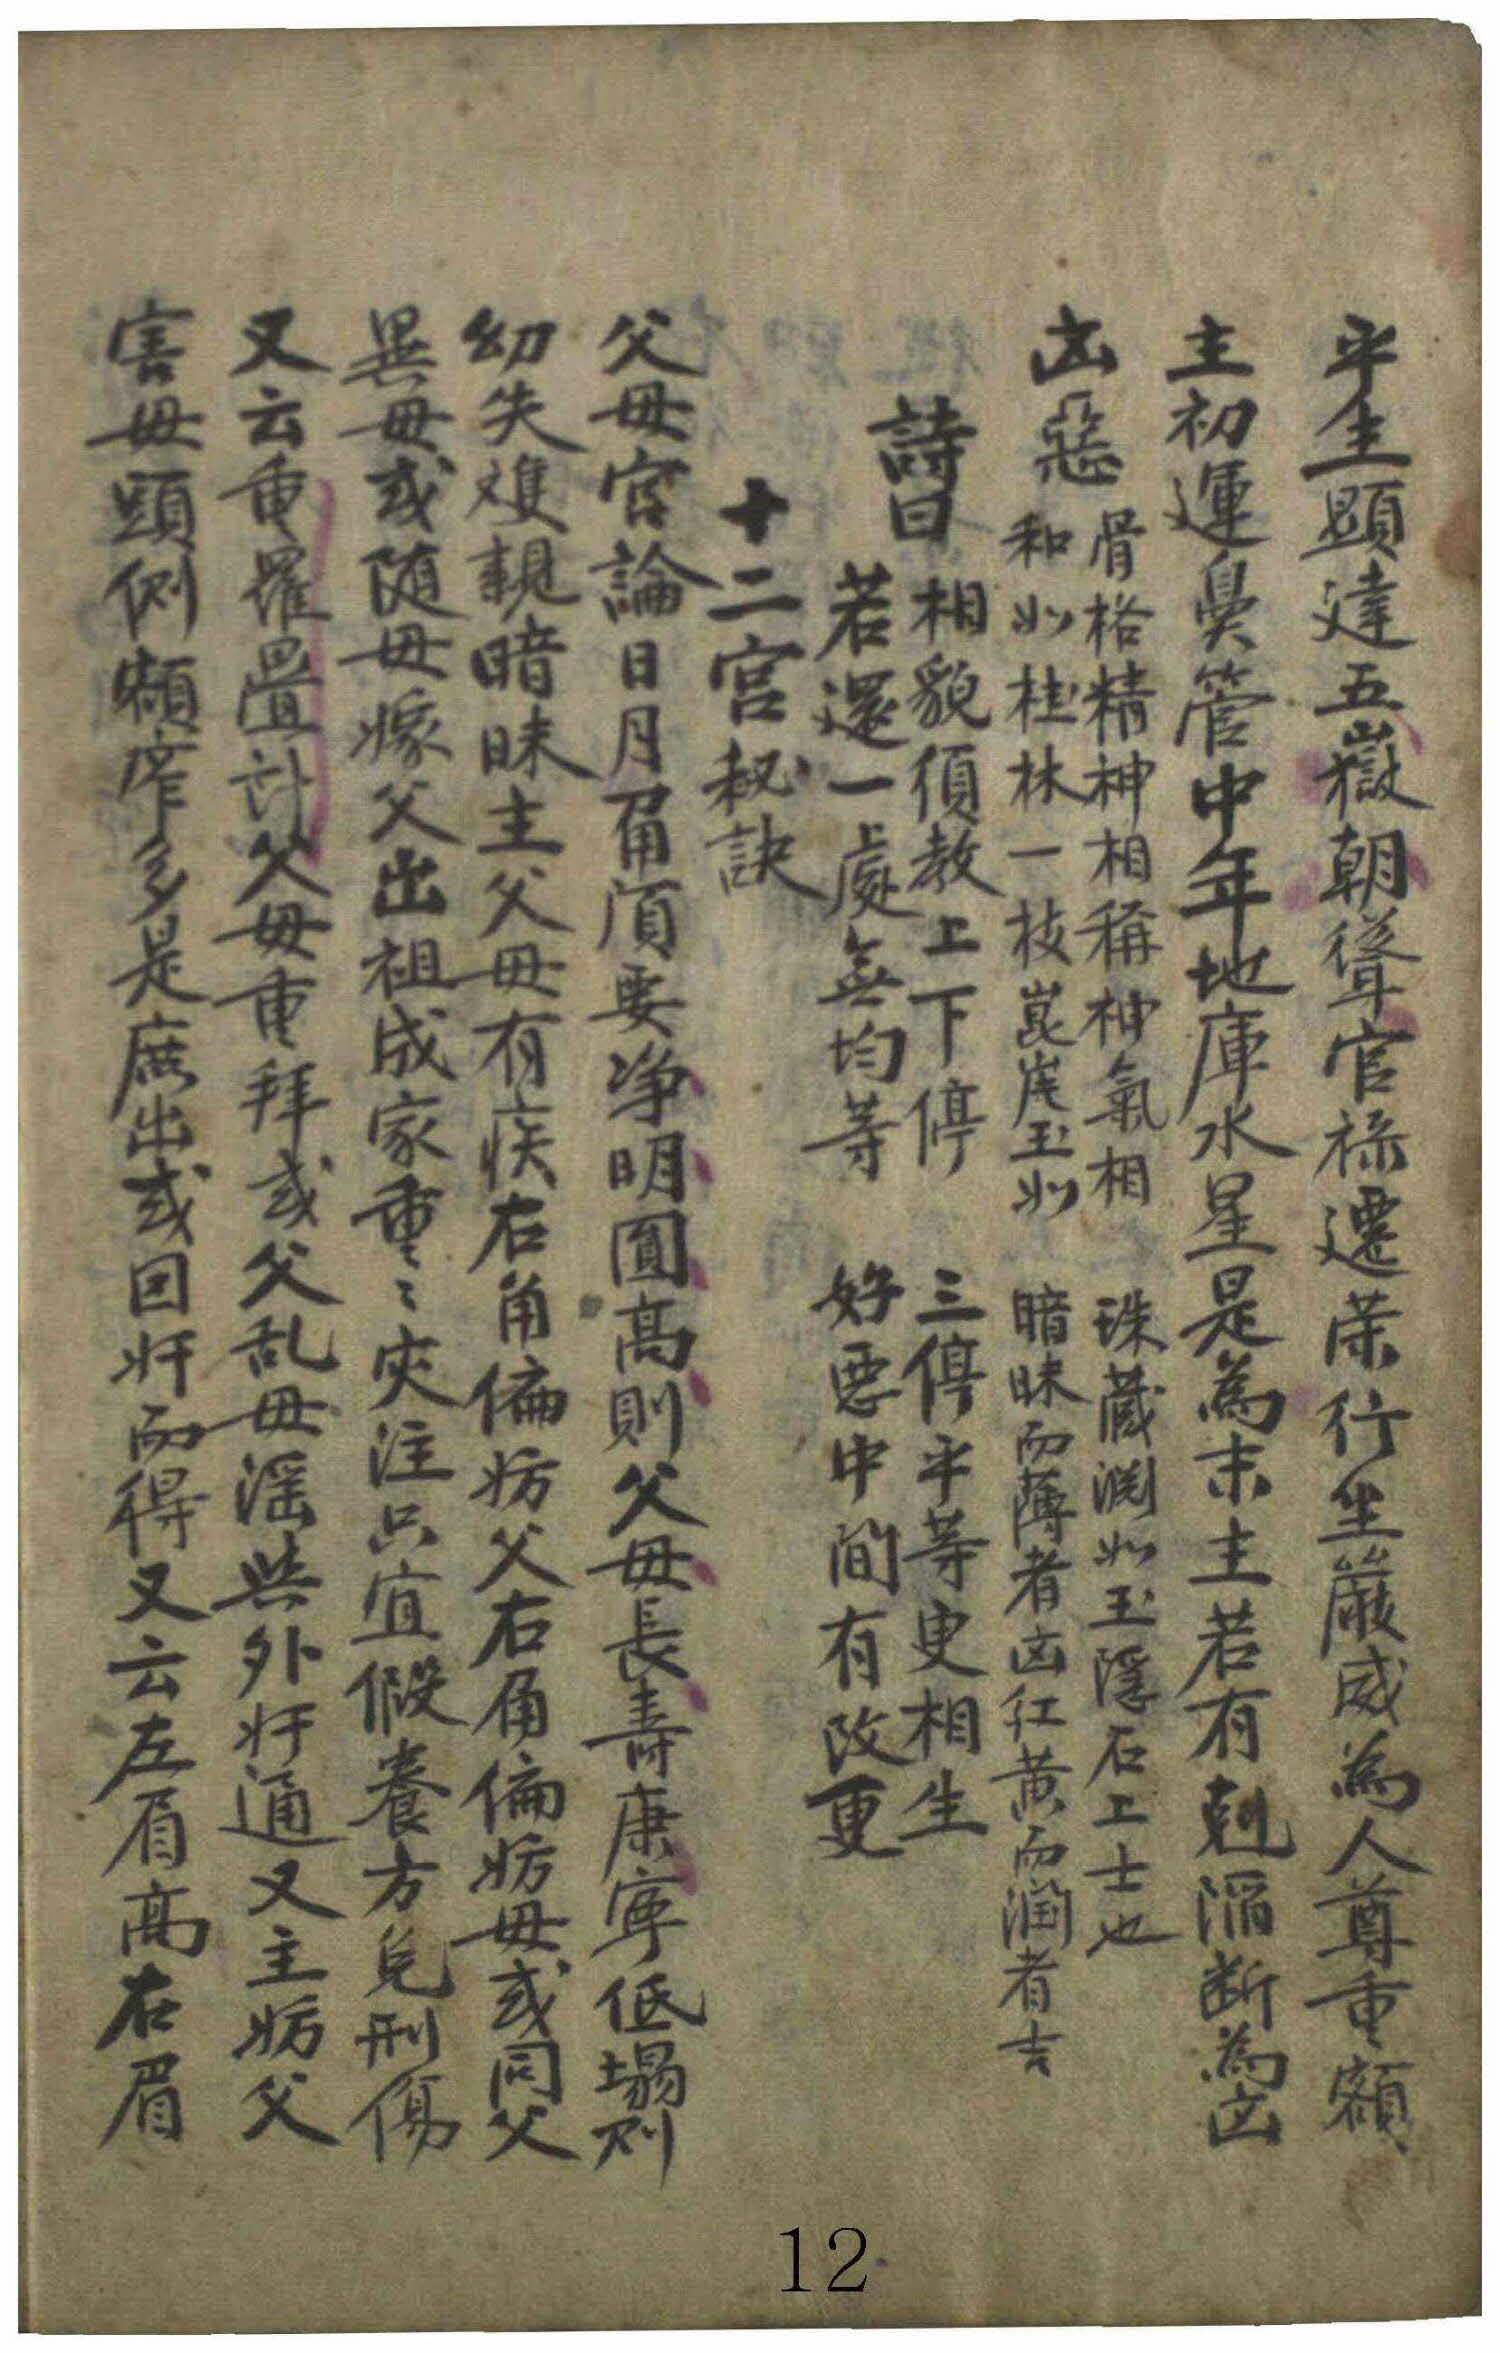 平生顕達五嶽朝聳官祿遷荣行坐嚴威為人尊重額
主初運鼻管中年地庫水星是為末主若有尅陷断為凶
凶惡
骨格精神相稱神氣相
和如桂林一枝崑崗玉如
珠藏渊如玉隱石上士也
暗昧而薄者凶红黄而潤者吉
詩曰
相貌須教上下停
三停平等更相生
若還一處無均等
好惡中間有改更
十二宫秘訣
父母宫論日月角湏要净明圓高則父母長壽康寧低塌則
幼失雙親暗昧主父母有疾右角偏妨父右角偏妨母或同父
異母或随母嫁父出祖成家重〻灾注只宜假養方免刑傷
又云重羅疊計父母重拜或父乱母滛與外奸通又主妨父
害母頭側額窄多是庶出或因奸而得又云左眉高右眉
12